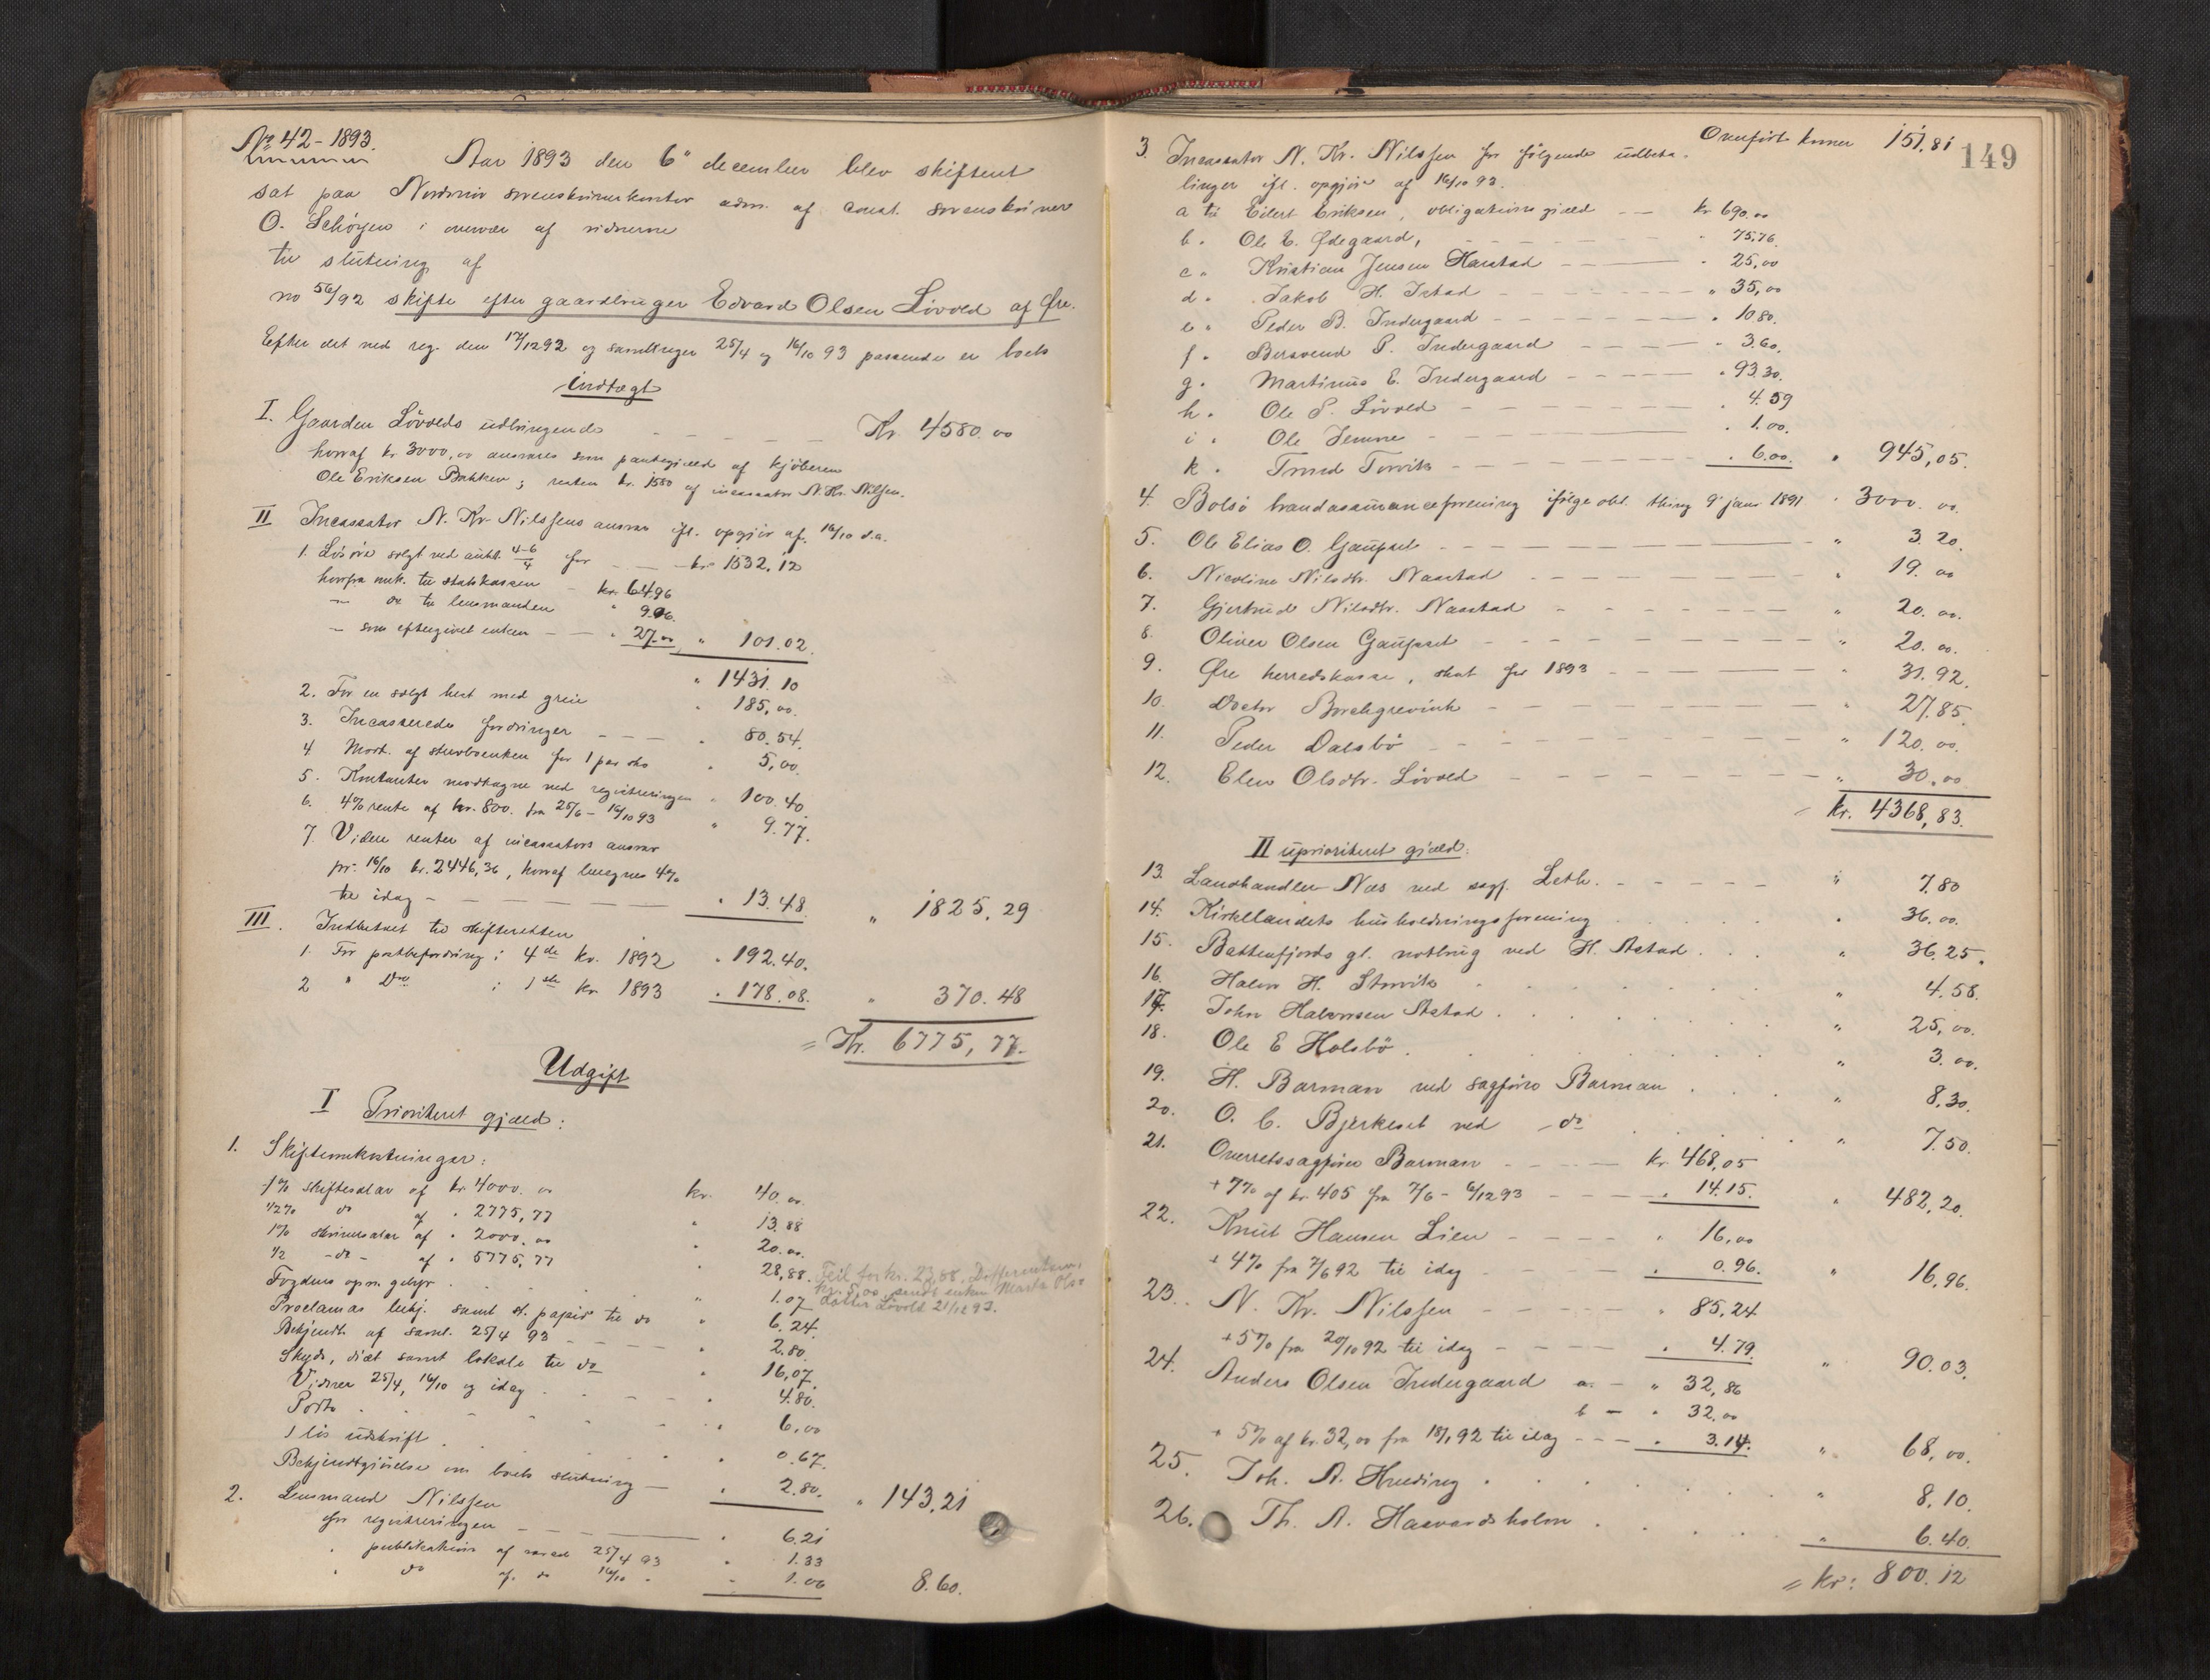 No 42 - 1893.
Aar 1893 den 6te december blev skifteret
sat paa Nordmør sorenskriverkontor adm. af const. sorenskriver
O. Schôyen i overvær af vidnerne
til slutning af
no 56/92 skifte efter gaardbruger Edvard Olsen Lövold af Øre.
Efter det ved reg. den 17/12 92 og samlinger 25/4 og 16/10 93 passerede er boets
Indtægt
I. Gaarden Lövolds udbringende - - - Kr. 4580.00
hvoraf kr 3000,00 ansvares som pantegjæld af kjöberen
Ole Eriksen Bakken; resten kr. 1580 af incassator N. Kr. Nilssen.
II Incassator N. Kr. Nilssens ansvar ifl. opgjör af 16/10 d.a.
1. Lösöre solgt ved aukt. 4-6/4 for - - kr. 1532,12
hvorfra omk. til statskassen - kr. 64.96
— do til lensmanden " 9.06.
— som eftergivet enken — " 27.00 " 101.02.
" 1431.10
2. For en solgt hest med greie " 185,00.
3. Incasserede fordringer - - - " 80.54.
4 Modt. af sterboenken for 1 par sko " 5,00.
5. Kontanter modtagne ved registreringen " 100.40
6. 4% rente af kr. 800. fra 25/6 - 16/10 93 " 9.77.
7. Videre renter af incassators ansvar
pr. 16/10 kr. 2446,36, hvoraf beregnes 4%
til idag - - - " 13.48. " 1825,29
III. Indbetalt til skifteretten
1. For postbefordring i 4de kv. 1892 " 192.40.
2 " Do i 1ste kv 1893 " 178.08. " 370.48
= Kr. 6775,77.
Udgift
I Prioriteret gjæld:
1. Skifteomkostninger:
1% skiftesalær af kr 4000.00 kr. 40.00
1/2% do af " 2775,77 " 13.88
1% skriversalær af " 2000.00 " 20.00
1/2 - do - af " 5775,77 " 28,88. Feil for kr. 23,88. Differentsen,
kr. 5,00 sendt enken Marta Ols-
Fogdens opn. gebyr . . . " 1.07 datter Lövold 21/12 93.
Proclamas bekj. samt st. papir til do " 6.24.
Bekjendt. af saml. 25/4 93 - - " 2.80.
Skyds, diæt samt lokale til do " 16,07.
Vidner 25/4, 16/10 og idag . " 4.80.
Porto . . . " 6,00
1 lös udskrift . . . " 0.67.
Bekjendtgjörelse om boets slutning — " 2.80. " 143,21
2. Lensmand Nilssen
for registreringen - - - " 6.21
" publikation af saml 25/4 93 " 1.33
" do af do 16/10 " " 1.06 8.60.
Overført kroner 151,81
149
3. Incassator N. Kr. Nilssen for følgende udbeta-
linger ifl. opgjör af 16/10 93.
a til Eilert Eriksen, obligationsgjæld - - kr. 690.00
b " Ole E. Ødegaard, - - - " 75,76.
c " Kristian Jensen Harstad - - - " 25,00
d " Jakob H. Istad - - - " 35,00
e " Peder B. Indergaard - - - " 10.80.
f " Bersvend P. Indergaard - - - " 3.60.
g " Martinus E. Indergaard - - - " 93.30.
h " Ole P. Lövold - - - " 4.59
i " Ole - - - " 1.00.
k " Trond Torvik - - - " 6.00. " 945,05.
4. Bolsö brandassuranceforening ifölge obl. thing 9 janr 1891 " 3000.00.
5. Ole Elias O. Gaupset - - - " 3.20.
6. Nicoline Nilsdtr. Naastad - - - " 19.00
7. Gjertrud Nilsdtr. Naastad - - - " 20.00.
8. Oliver Olsen Gaupset - - - " 20.00.
9. Øre herredskasse, skat for 1893 - - - " 31.92.
10. Doctor Borchgrevink - - - " 27.85.
11. Peder Dalsbö - - - " 120.00.
12. Elen Olsdtr. Lövold - - - " 30.00
= kr. 4368,83.
II uprioriteret gjæld:
13. Landhandler Næs ved sagf. Leth. - - - " 7.80
14. Kirkelandets husholdningsforening . . . " 36.00.
15. Battenfjords gl. notbrug ved H. Astad . . . " 36.25.
16. Halvor H. Storvik . . . " 4.58.
17. John Halvorsen Astad . . . " 25,00.
18. Ole E Holsbö . . . " 3.00.
19. H. Barman ved sagförer Barman . . . " 8,30.
20. O. C. Bjerkeset ved - do . . . " 7.50.
21. Overretssagförer Barman - - - kr. 468,05
+ 7% af kr. 405 fra 7/6 - 6/12 93 - - - " 14.15. " 482,20.
22. Knut Hansen Lien - - - " 16,00
+ 4% fra 7/6 92 til idag - - - " 0.96. " 16,96.
23. N. Kr. Nilssen - - - " 85,24
+ 5% fra 20/10 92 til idag - - - " 4.79. " 90.03.
24. Anders Olsen Indergaard a. - " 32,86
b - " 32,00
+ 5% af kr. 32,00 fra 18/1 92 til idag - - - " 3.14. " 68,00.
25. Joh. A. Huseding . . . " 8.10.
26. Th. A. Haavardsholm . . . " 6.40.
= kr: 800.12